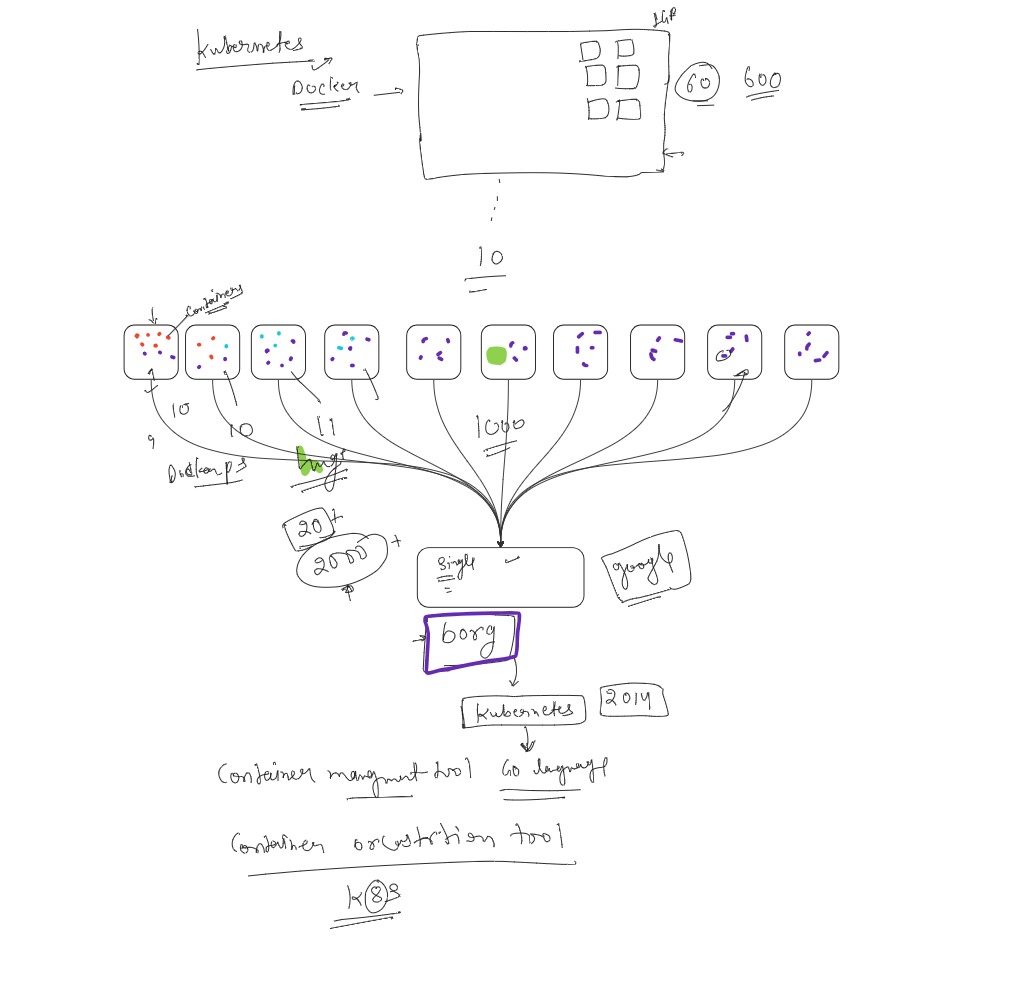 Kubernetes
Docker
60 600
10
Containers
10
10
11
1000
9
Docker ps
20+
2000 +
Single
google
borg
Kubernetes
2014
Container mangment tool
Go language
Container orcastrtion tool
K8S